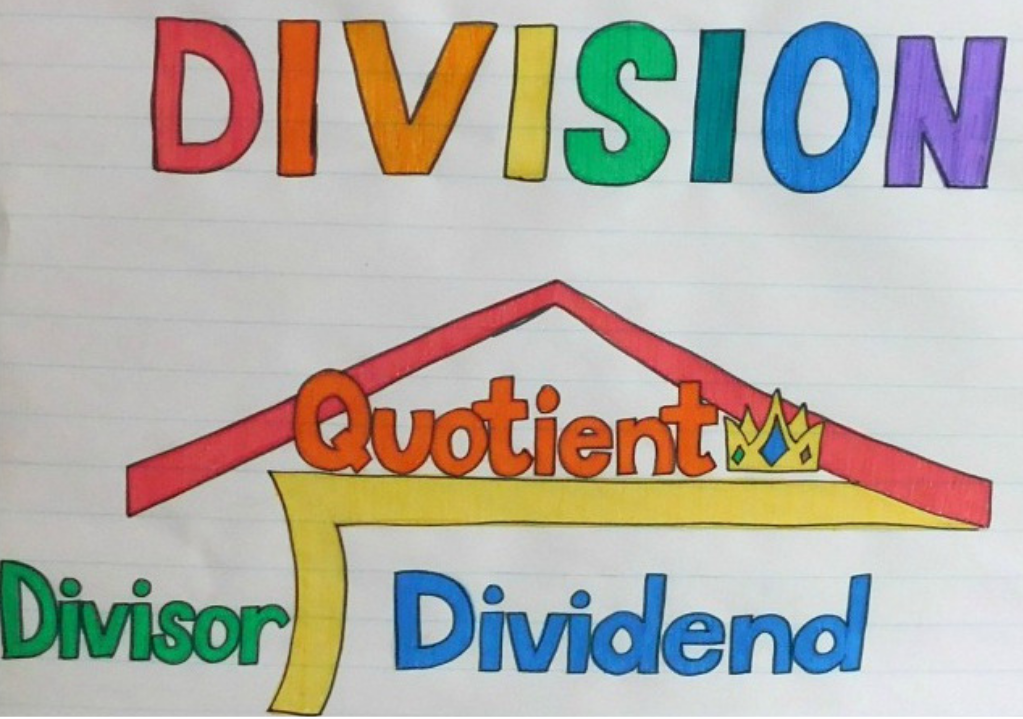 DIVISION
Quotient
Divisor Dividend